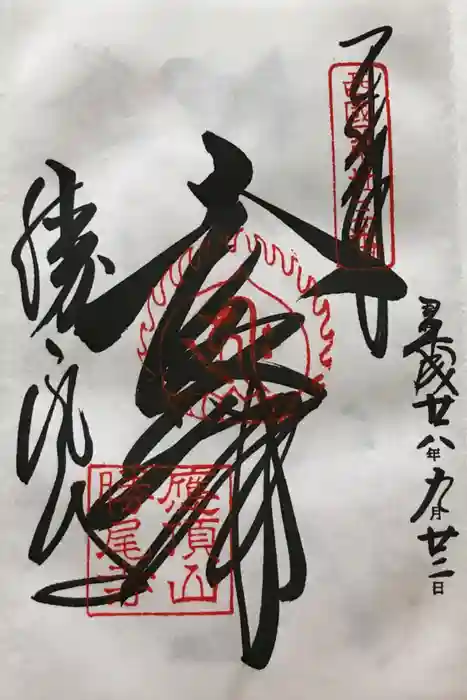 奉拝
西國第廿三番
平成廿八年九月廿二日
大悲殿
應頂山
勝尾寺
勝尾寺